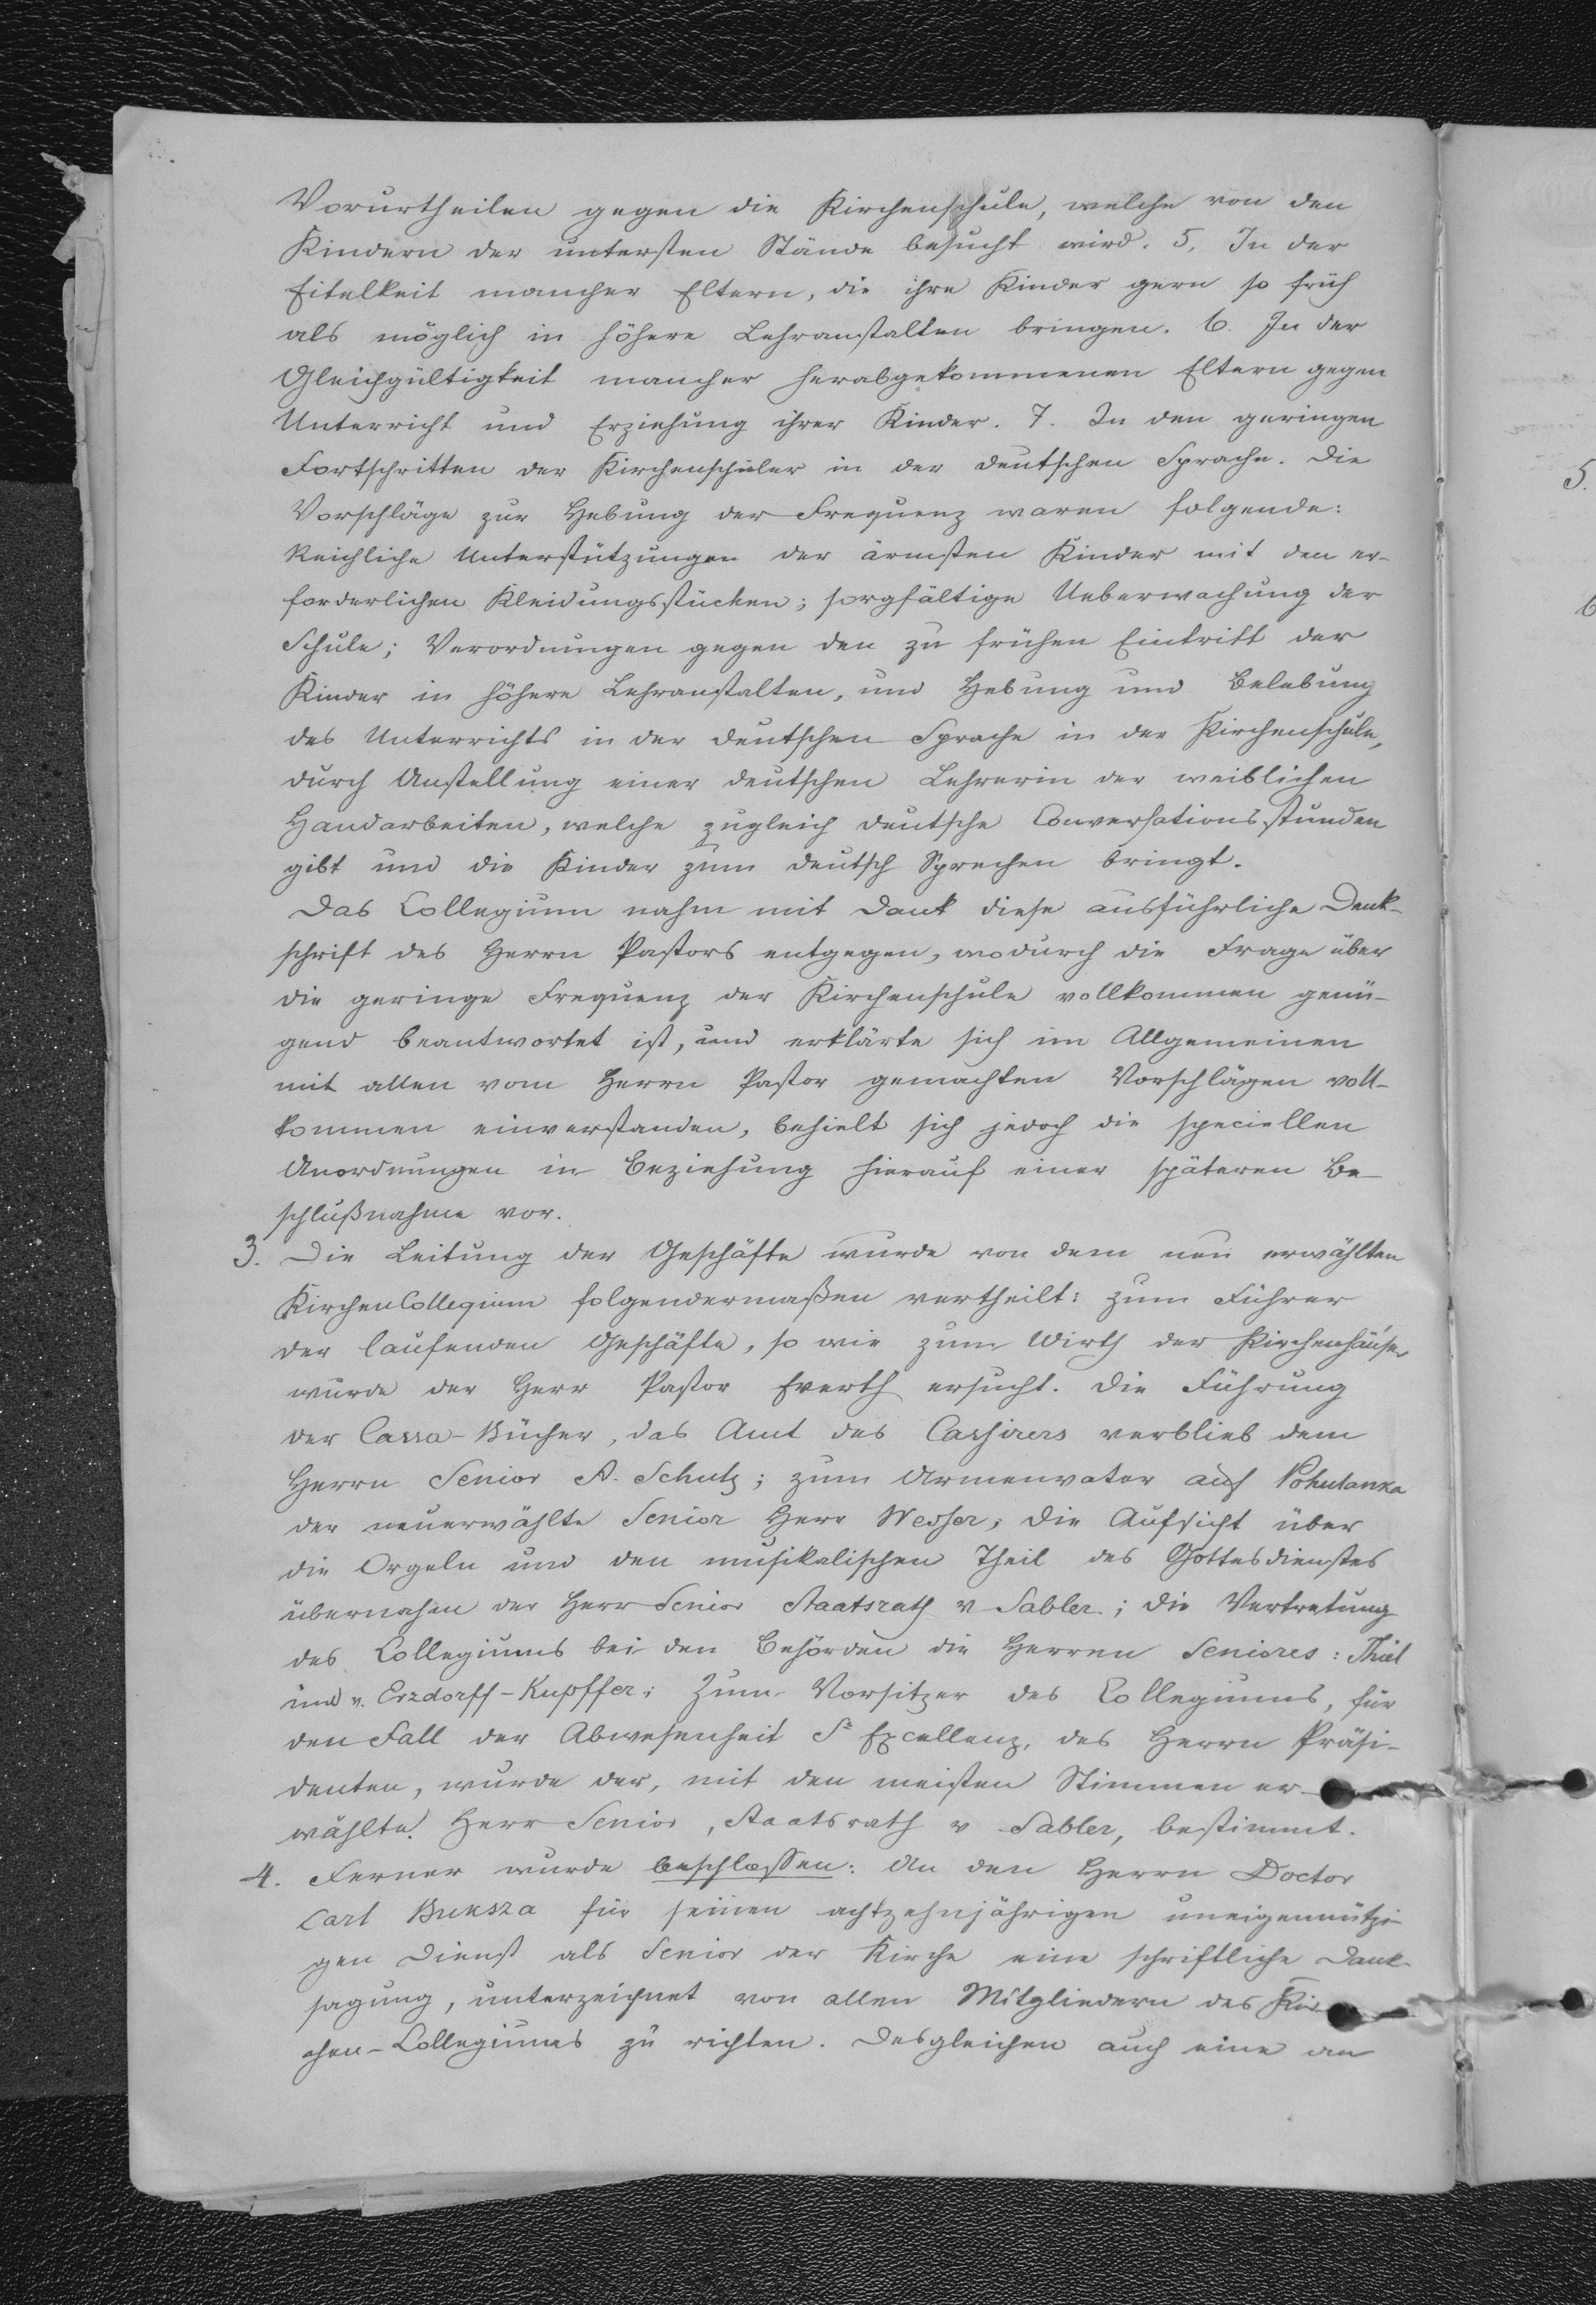 Vorurtheilen gegen die Kirchenschule, welche von den
Kindern der untersten Stände besucht wird. 5, In der
Eitelkeit mancher Eltern, die ihre Kinder gern so früh
als möglich in höhere Lehranstalten bringen. 6. In der
Gleichgültigkeit mancher herabgekommenen Eltern gegen
Unterricht und Erziehung ihrer Kinder. 7. In den geringen
Fortschritten der Kirchenschüler in der deutschen Sprache. Die
Vorschläge zur Hebung der Frequenz waren folgende:
Reichliche Unterstützungen der ärmsten Kinder mit den er-
forderlichen Kleidungsstücken; sorgfältige Ueberwachung der
Schule; Verordnungen gegen den zu frühen Eintritt der
Kinder in höhere Lehranstalten, und Hebung und Belebung
des Unterrichts in der deutschen Sprache in der Kirchenschule,
durch Anstellung einer deutschen Lehrerin der weiblichen
Handarbeiten, welche zugleich deutsche Conversationsstunden
gibt und die Kinder zum deutsch Sprechen bringt.
Das Collegium nahm mit Dank diese ausführliche Denk-
schrift des Herrn Pastors entgegen, wodurch die Frage über
die geringe Frequenz der Kirchenschule vollkommen genü-
gend beantwortet ist, und erklärte sich im Allgemeinen
mit allen vom Herrn Pastor gemachten Vorschlägen voll-
kommen einverstanden, behielt sich jedoch die speciellen
Anordnungen in Beziehung hierauf einer späteren Be-
schlußnahme vor.
3. Die Leitung der Geschäfte wurde von dem neu erwählten
KirchenCollegium folgendermaßen vertheilt: zum Führer
der laufenden Geschäfte, so wie zum Wirth der Kirchenhäuser
wurde der Herr Pastor Everth ersucht. Die Führung
der Cassa-Bücher, das Amt des Cassirers verblieb dem
Herrn Senior A. Schutz; zum Armenvater auf Pohulanka
der neuerwählte Senior Herr Wesser; die Aufsicht über
die Orgeln und den musikalischen Theil des Gottesdienstes
übernahm der Herr Senior Staatsrath v Sabler.; die Vertretung
des Collegiums bei den Behörden die Herren Seniores: Thiel
und v. Erzdorff-Kupffer; Zum Vorsitzer des Collegiums, für
den Fall der Abwesenheit Sr Excellenz, des Herrn Präsi-
denten, wurde der, mit den meisten Stimmen er-
wählte Herr Senior, Staatsrath v Sabler, bestimmt.
4. Ferner wurde beschlossen: An den Herrn Doctor
Carl Buksza für seinen achtzehnjährigen uneigennützi-
gen Dienst als Senior der Kirche eine schriftliche Dank-
sagung, unterzeichnet von allen Mitgliedern des Kir
chen-Collegiums zu richten. Desgleichen auch eine an
5.
6